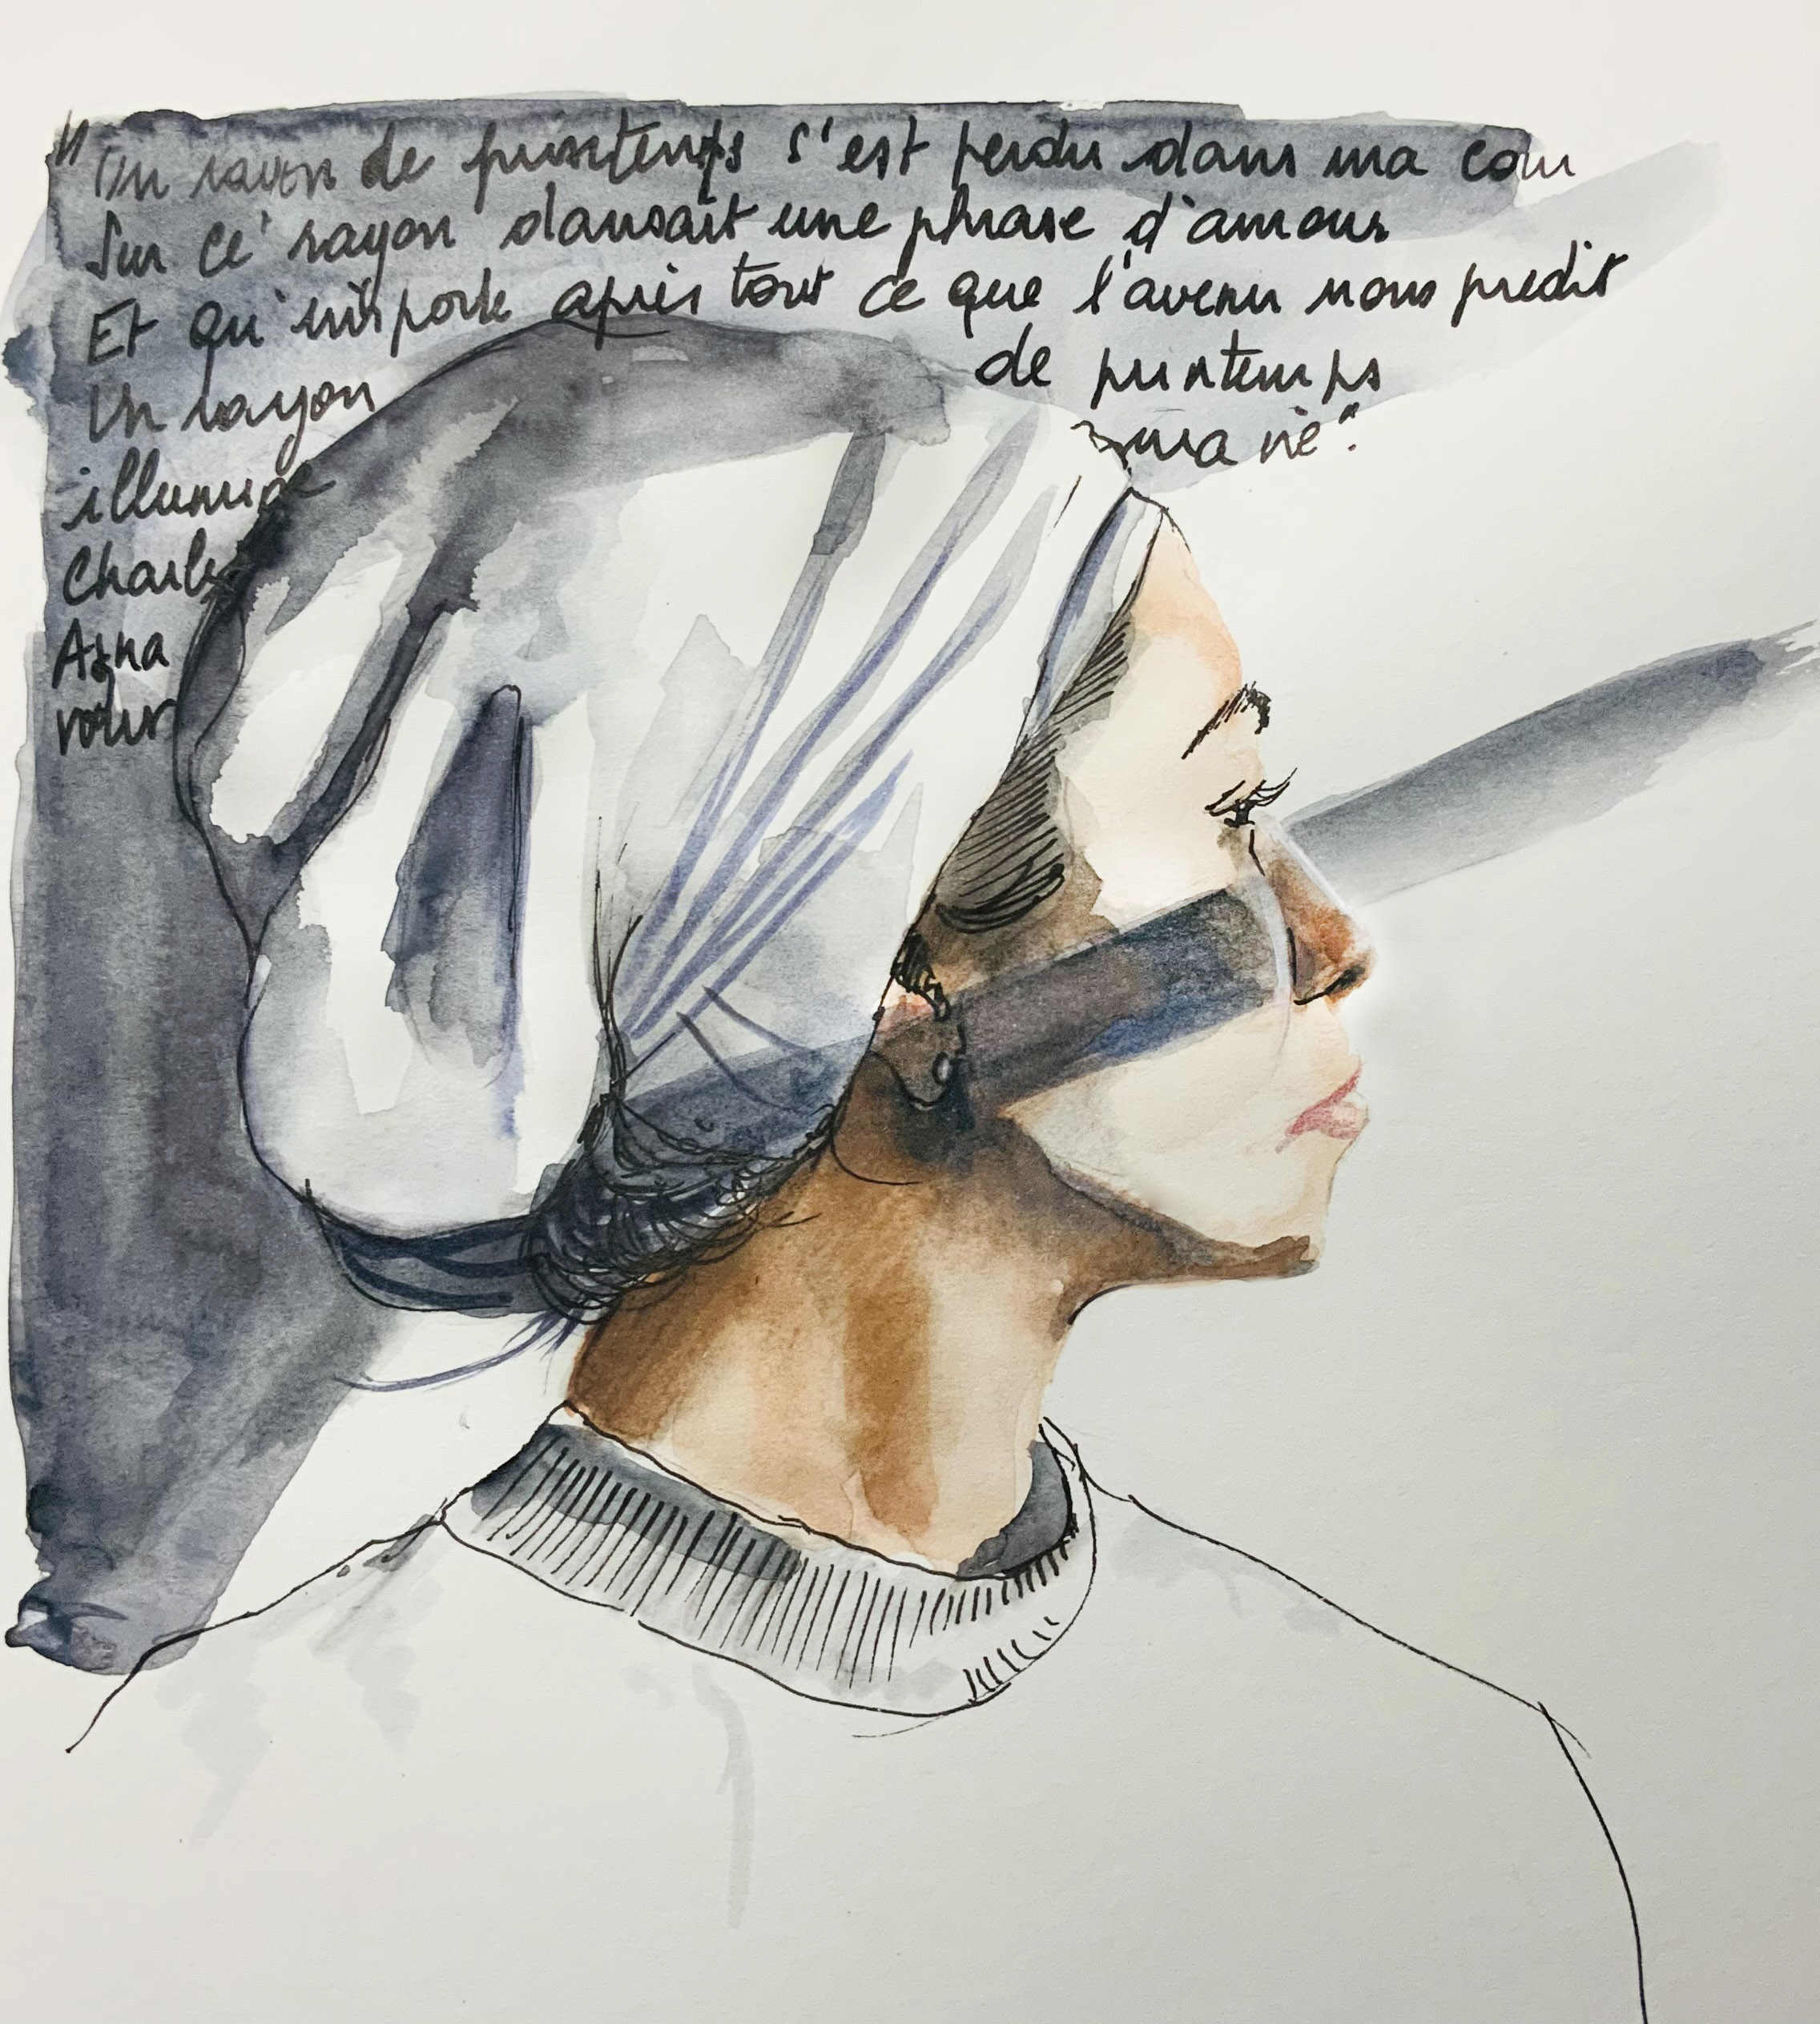 "Un rayon de printemps s'est perdu dans ma cour
Sur ce rayon dansait une phrase d'amour
Et qu'importe après tout ce que l'avenir nous predit
Un rayon de printemps
illumine ma vie".
Charles
Azna
vour